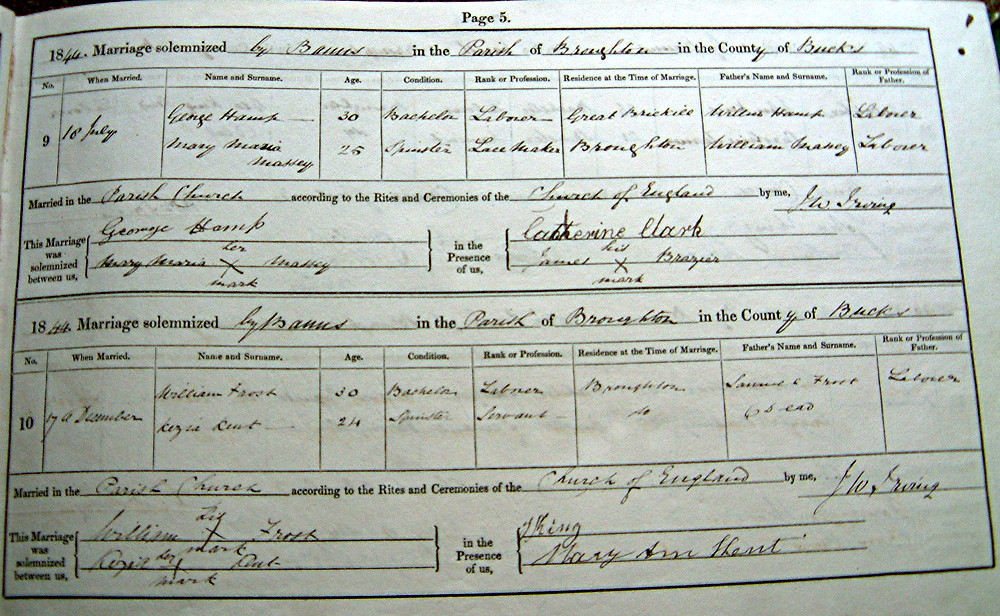 Page 5.
1844. Marriage solemnized by Banns in the Parish of Broughton in the County of Bucks
No. When Married. Name and Surname. Age. Condition. Rank or Profession. Residence at the Time of Marriage. Father's Name and Surname. Rank or Profession of Father.
9 18 July George Hamp 30 Bachelor Laborer Great Brickill William Hamp Laborer
Mary Maria Massey 25 Spinster Lace Maker Broughton William Massey Laborer
Married in the Parish Church according to the Rites and Ceremonies of the Church of England by me, J W Irving
This Marriage was solemnized between us, George Hamp in the Presence of us, Catherine Clark
Mary Maria her X mark Massey James his X mark Brazier
1844. Marriage solemnized by Banns in the Parish of Broughton in the County of Bucks
No. When Married. Name and Surname. Age. Condition. Rank or Profession. Residence at the Time of Marriage. Father's Name and Surname. Rank or Profession of Father.
10 17th December William Frost 30 Bachelor Laborer Broughton Samuel Frost Laborer
Kezia Kent 24 Spinster Servant do Dead
Married in the Parish Church according to the Rites and Ceremonies of the Church of England by me, J W Irving
This Marriage was solemnized between us, William his X mark Frost in the Presence of us, J King
Kezia her X mark Kent Mary Ann Hent